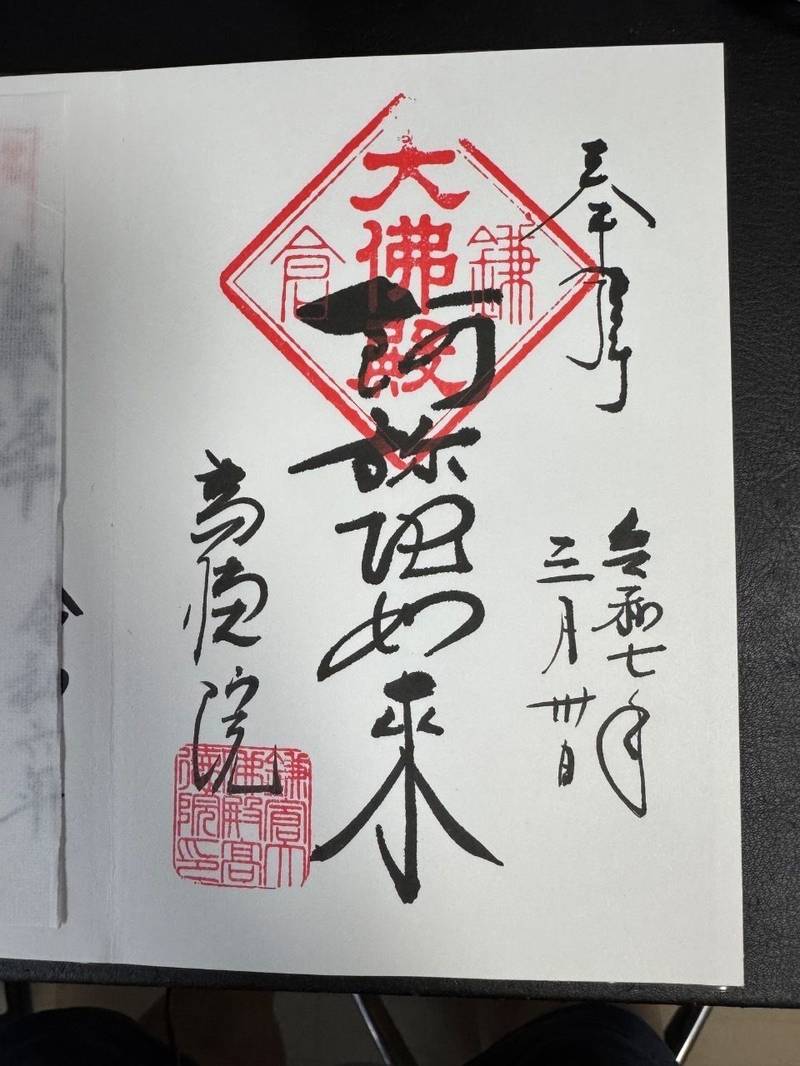 奉拝
令和七年
三月卅日
大佛殿
鎌倉
阿弥陀如来
高徳院
鎌倉大
佛殿高
徳院印